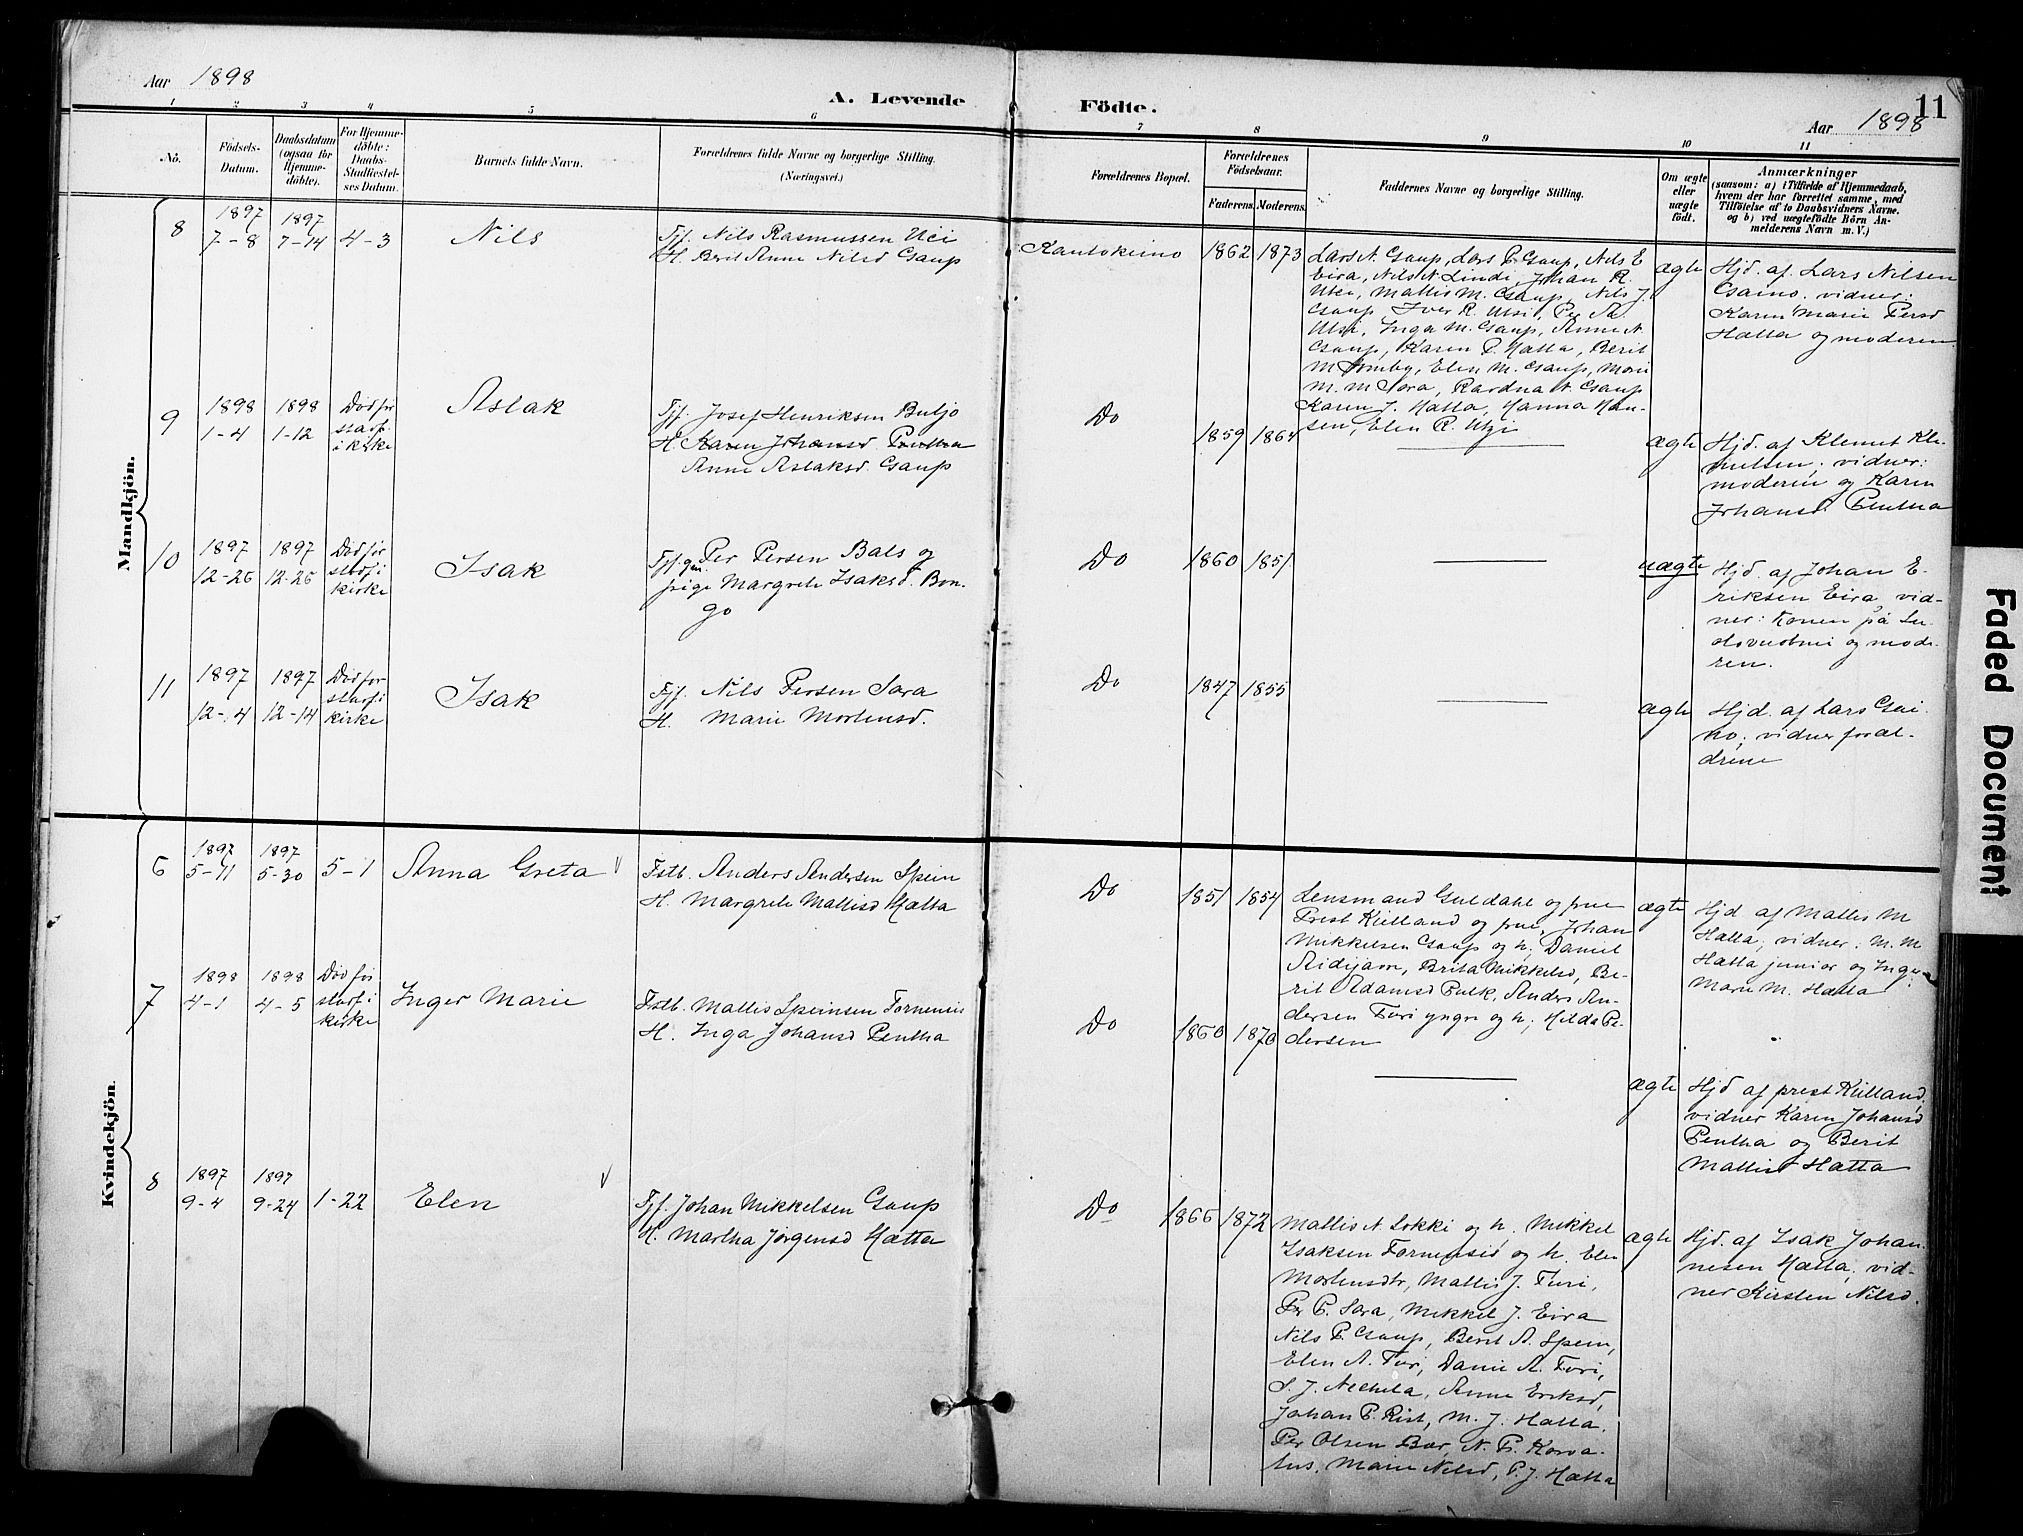 Aar 1898
A. Levende Födte.
11
Aar 1898
1 2 3 4 5 6 7 8 9 10 11
No.
Födsels-
Datum.
Daabsdatum
(ogsaa for
Hjemme-
döbte).
For Hjemme-
döbte:
Daabs-
Stadfæstel-
ses Datum.
Barnets fulde Navn.
Forældrenes fulde Navne og borgerlige Stilling.
(Næringsvei.)
Forældrenes Bopæl.
Forældrenes
Födselsaar.
Faderens. Moderens.
Faddernes Navne og borgerlige Stilling.
Om ægte
eller
uægte
födt.
Anmærkninger
(saasom: a) i Tilfælde af Hjemmedaab,
hvem der har forrettet samme, med
Tilföielse af to Daabsvidners Navne.
og b) ved uægtefödte Börn An-
melderens Navn m. V.)
Mandkjön.
8
1897
7-8
1897
7-14
4-3
Nils
Fjf. Nils Rasmussen Uci
H. Berit Anne Nilsd Gaup
Kautokeino
1862 1873
Lars N. Gaup, Lars P. Gaup, Nils E
Eira, Nils N. Lindi, Johan R.
Utsi, Mattis M. Gaup, Nils J.
Gaup, Iver R. Utsi, Per
Utsi, Inga M. Gaup, Anne N.
Gaup, Karen P. Hætta, Berit
M Somby, Elen M. Gaup, Marie
M. M Sara, Rardna N. Gaup
Karen J. Hatta, Hanna Han-
sen, Elen R. Utsi
ægte
Hjd. af Lars Nilsen
Gaino. vidner:
Karen Marie Persd
Hætta og moderen.
9
1898
1-4
1898
1-12
Död för
stadf.
i kirke
Aslak
Fjf. Josef Henriksen Buljo
H. Karen Johansd. Pentha
Anne Aslaksd. Gaup
Do
1859 1864
ægte
Hjd. af Klemet Kle-
metsen; vidner:
moderen og Karen
Johansd. Pentha
10
1897
12-26
1897
12-26
Död för
stadf. i
kirke
Isak
Fjf. Per Persen Bals og
pige Margrete Isaksd. Bon-
go
Do
1860 1851
uægte
Hjd. af Johan E-
riksen Eira, vid-
ner: Konen på
og mode-
ren.
11
1897
12-4
1897
12-14
Död for
stadf. i
kirke
Isak
Fjf. Nils Persen Sara
H. Marie Mortensd.
Do
1847 1855
ægte
Hjd. af Lars Gai-
no; vidner foræl-
drene
Kvindekjön.
6
1897
5-11
1897
5-30
5-1
Anna Greta
Fstb. Anders Andersen Spein
H. Margrete Mattisd Hætta
Do
1851 1854
Lensmand Guldahl og frue
Prest Kielland og frue, Johan
Mikkelsen Gaup og h; Daniel
Aidijarvi, Brita Mikkelsd, Be-
rit Adamsd Pulk, Anders An-
dersen Turi yngre og h; Hilda Pe-
dersen
ægte
Hjd af Mattis M
Hætta; vidner: M. M
Hætta junior og Inger
Marie M. Hætta
7
1898
4-1
1898
4-5
Död för
stadf i
kirke
Inger Marie
Fstb. Mattis Speinsen Fornensis
H. Inga Johansd Pentha
Do
1860 1870
ægte
Hjd af prest Kielland,
vidner Karen Johansd
Pentha og Berit
Mattisd Hætta
8
1897
9-4
1897
9-24
1-22
Elen
Fjf. Johan Mikkelsen Gaup
H. Martha Jörgensd Hætta
Do
1866 1872
Mattis N Lokki og h. Mikkel
Isaksen Fornensis og h. Elen
Mortensdtr, Mattis J. Turi,
Per P. Sara, Mikkel J. Eira
Nils P. Gaup, Berit A. Spein,
Elen A. Turi, Danie A. Turi,
S. J. Nechela, Anne Eriksd,
Johan P. Rist, M. J. Hatta,
Per Olsen Bær, N. P. Korva-
tus, Marie Nilsd, P. J. Hætta
ægte
Hjd. af Isak Johan-
nesen Hætta; vid-
ner Kirsten Nilsd.
Faded Document